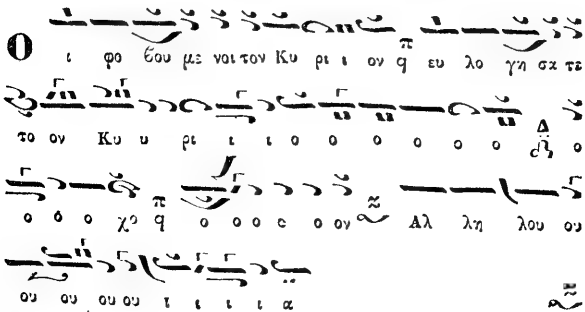 Ο ι φο βου με νοι τον Κυ ρι ι ον π q ευ λο γη σα τε
το ον Κυ υ ρι ι ι ο ο ο ο ο ο ο Δ ο
ο ο ο χο π q ο ο ο ο ο ον Αλ λη λου ου
ου ου ου ου ι ι ι ι α